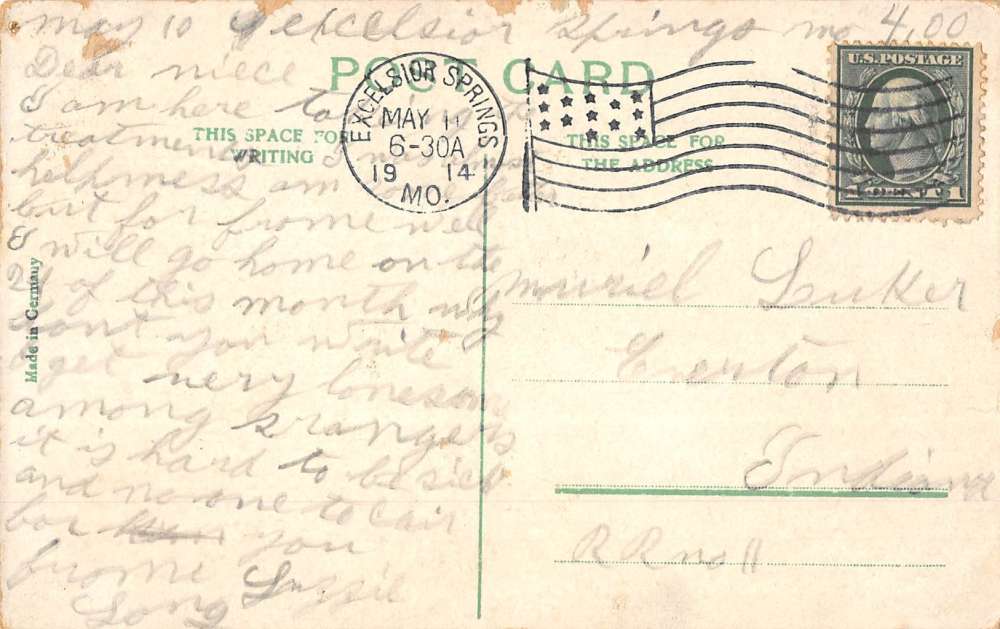 may 10 excelsior springs mo 4,00
POST CARD
Dear niece
I am here
treatment
helpness am
but for frome well
I will go home on the
24 of this month why
dont you write
I get very lonesom
among strangers
it is hard to be sick
and no one to cair
for you
frome Lizzie
Long
THIS SPACE FOR
WRITING
THIS SPACE FOR
THE ADDRESS
Made in Germany
EXCELSIOR SPRINGS
MAY 11
6-30A
19 14
MO.
U.S. POSTAGE
1 1
muriel Luker
Everton
Indiana
RR no 11